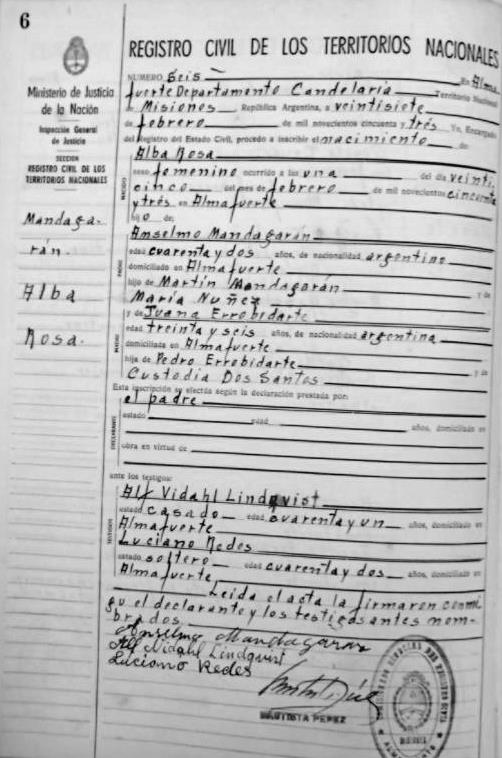 6
REGISTRO CIVIL DE LOS TERRITORIOS NACIONALES
Ministerio de Justicia
de la Nación
Inspección General
de Justicia
SECCION
REGISTRO CIVIL DE LOS
TERRITORIOS NACIONALES
Mandaga-
rán.
Alba
Rosa.
NUMERO seis En Alma-
fuerte Departamento Candelaria Territorio Nacional
de Misiones República Argentina, a veintisiete
de febrero de mil novecientos cincuenta y tres Yo, Encargado
del Registro del Estado Civil, procedo a inscribir el nacimiento de:
NACIDO
Alba Rosa
sexo femenino ocurrido a las una del día veinti
cinco del mes de febrero de mil novecientos cincuenta
y trés en Almafuerte
hijo de:
PADRE
Anselmo Mandagarán
edad cuarenta y dos años, de nacionalidad argentino
domiciliado en Almafuerte
hijo de Martín Mandagarán y de
María Nuñez
MADRE
y de Juana Errobidarte
edad treinta y seis años, de nacionalidad argentina
domiciliada en Almafuerte
hija de Pedro Errobidarte y de
Custodia Dos Santos
Esta inscripción se efectúa según la declaración prestada por:
DECLARANTE
el padre
estado edad años, domiciliado en
obra en virtud de
ante los testigos:
TESTIGOS
Alf Vidahl Lindqvist
estado casado edad cuarenta y un años, domiciliado en
Almafuerte
Luciano Redes
estado soltero edad cuarenta y dos años, domiciliado en
Almafuerte.
Leida el acta la firmaron conmi
go el declarante y los testigos antes nom-
brados
Anselmo Mandagaran
Alf Vidahl Lindqvist
Luciano Redes
BAUTISTA PEREZ